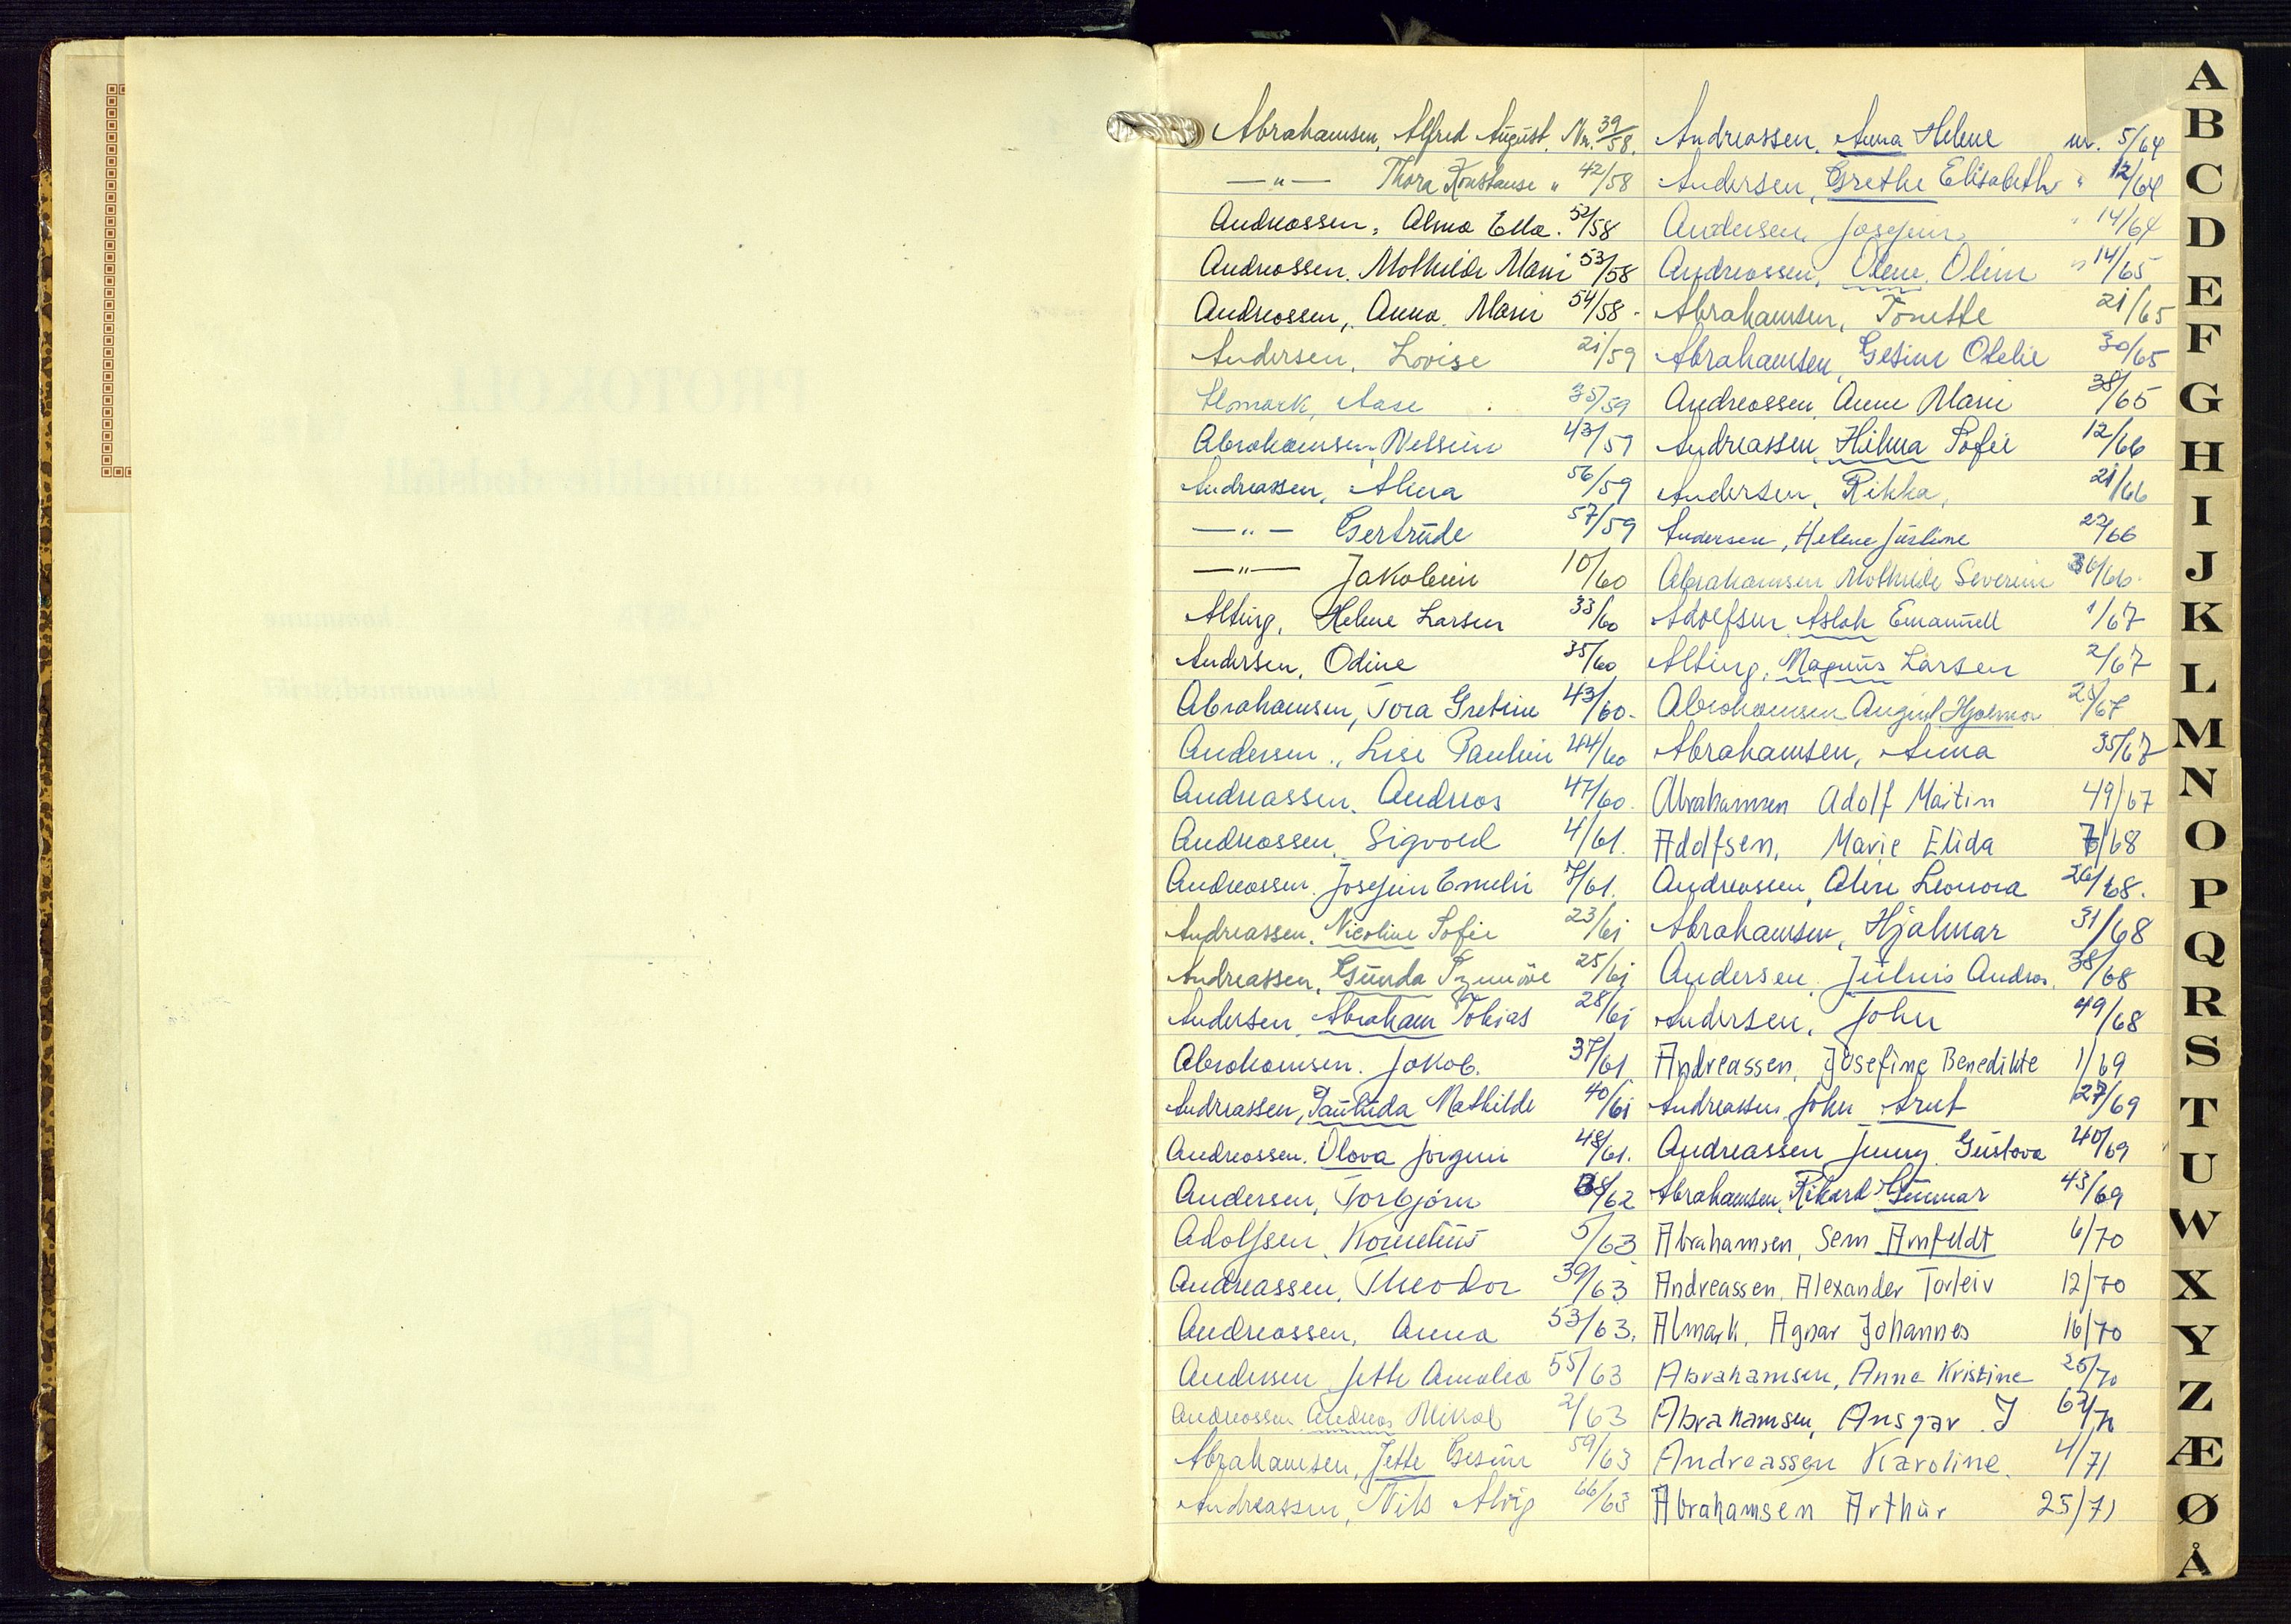 Abrahamsen, Alfred August. Nr. 39/58.
—"— Thora Konstanse " 42/58
Andreassen, Alma Ella. 52/58
Andreassen. Mathilde Marie 53/58
Andreassen, Anna Marie 54/58
Andersen, Lovise 21/59
Almark, Aase 35/59
Abrahamsen, Nelsine 43/59
Andreassen, Alma 56/59
—"— Gertrüde 57/59
—"— Jakobine 10/60
Alting, Helene Larsen 33/60
Andersen, Odine 35/60
Abrahamsen, Tora Gretine 43/60.
Andersen, Lise Pauline 44/60
Andreassen. Andreas 47/60.
Andreassen, Sigvald 4/61.
Andreassen. Josefine Emelie 7/61.
Andreassen, Nicoline Sofie 23/61
Andreassen, Gunda Synnöve 25/61
Andersen, Abraham Tobias 28/61
Abrahamsen. Jakob. 37/61
Andreassen, Paulida Mathilde 40/61
Andreassen. Olava Jørgine 48/61.
Andersen, Torbjørn /62
Adolfsen, Kornelius 5/63
Andreassen, Theodor 39/63
Andreassen, Anna 53/63.
Andersen Jette Amalia 55/63
Andreassen Andreas Mikal 2/63
Abrahamsen, Jette Gesine 59/63
Andreassen, Nils Alvig 66/63
Andreassen, Anna Helene nr. 5/64
Andersen, Grethe Elisabeth " 12/64
Andersen, Josefine " 14/64
Andreassen, Olene Oline " 14/65
Abrahamsen, Tonette 21/65
Abrahamsen, Gesine Otelie 30/65
Andreassen, Anne Marie 38/65
Andreassen, Hilma Sofie 12/66
Andersen, Rikka, 21/66
Andersen, Helene Justine 22/66
Abrahamsen Mathilde Severine 36/66.
Adolfsen, Aslak Emanuell 1/67
Alting, Magnus Larsen 2/67
Abrahamsen August Hjalmar 28/67
Abrahamsen, Anna 35/67
Abrahamsen Adolf Martin 49/67
Adolfsen, Marie Elida 7/68
Andreassen, Aline Leonora 26/68.
Abrahamsen, Hjalmar 31/68
Andersen, Julius Andreas. 38/68
Andersen, John 49/68
Andreassen, Josefine Benedikte 1/69
Andreassen John Arnt 27/69
Andreassen Jenny Gustava 40/69
Abrahamsen, Rikard Gunnar 43/69
Abrahamsen, Sem Arnfeldt 6/70
Andreassen, Alexander Torleiv 12/70
Almark, Agnar Johannes 16/70
Abrahamsen, Anna Kristine 25/70
Abrahamsen, Ansgar J 62/70
Andreassen Karoline. 4/71
Abrahamsen Arthur 25/71
A
B
C
D
E
F
G
H
I
J
K
L
M
N
O
P
Q
R
S
T
U
W
X
Y
Z
Æ
Ø
Å